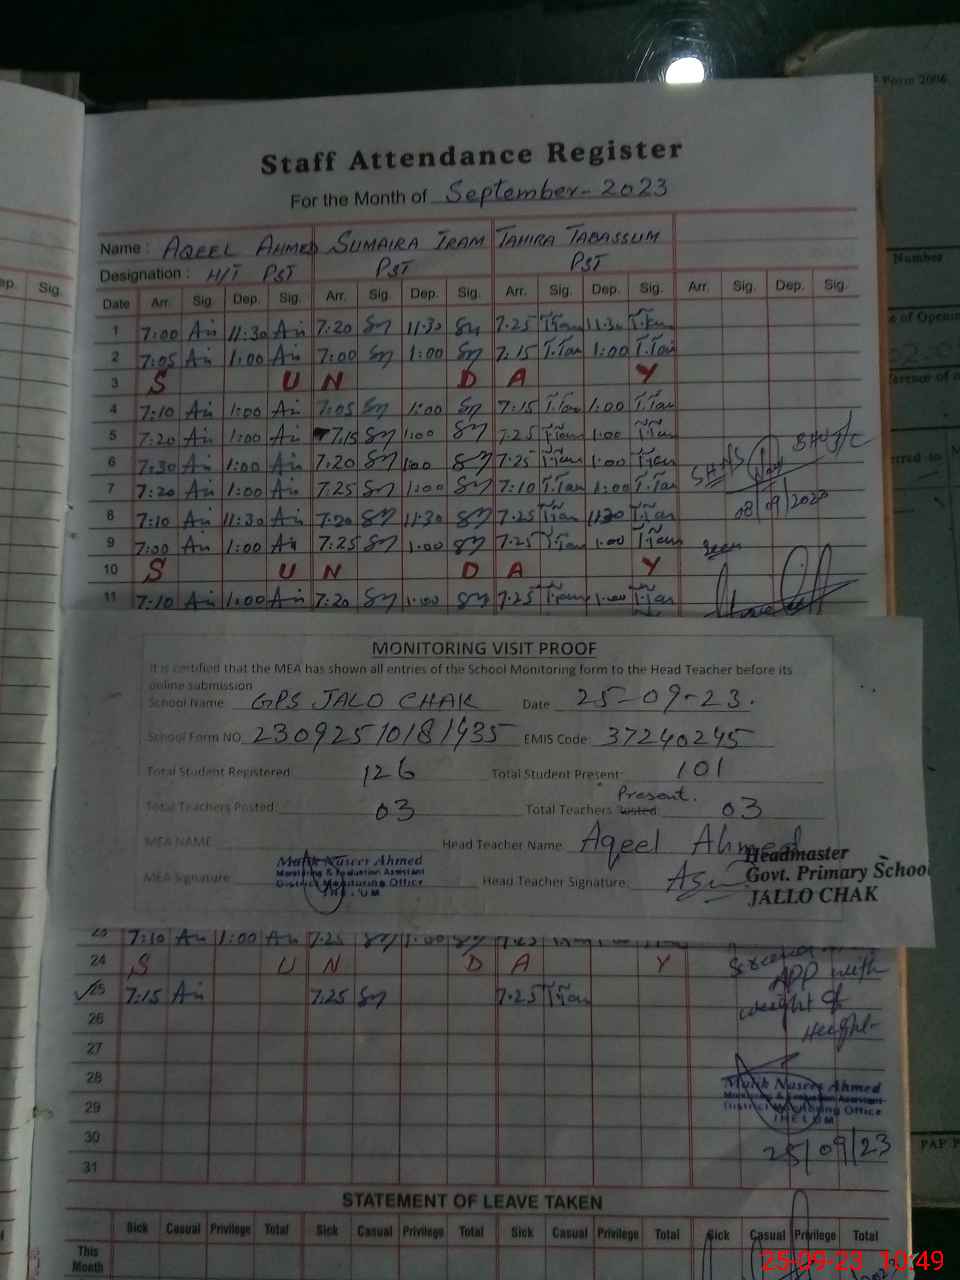 P Form 2006
Staff Attendance Register
For the Month of September-2023
Name : AQEEL AHMED SUMAIRA IRAM TAHIRA TABASSUM
Designation : H/T PST PST PST
Number
ep. Sig.
Date Arr. Sig. Dep. Sig. Arr. Sig. Dep. Sig. Arr. Sig. Dep. Sig. Arr. Sig. Dep. Sig.
1 7:00 11:30 7:20 11:30 7.25 11.30
2 7:05 1:00 7:00 1:00 7.15 1:00
3 S U N D A Y
4 7:10 1:00 7:05 1:00 7:15 1:00
5 7:20 1:00 7.15 1:00 7.25 1.00
6 7:30 1:00 7.20 1:00 7.25 1.00
7 7:20 1:00 7.25 1:00 7:10 1:00
8 7:10 11:30 7.20 11:30 7.25 1130
08/09/2023
9 7:00 1:00 7:25 1.00 7.25 1.00
Seen
10 S U N D A Y
11 7:10 1:00 7.20 1.00 7.25 1.00
MONITORING VISIT PROOF
It is certified that the MEA has shown all entries of the School Monitoring form to the Head Teacher before its
online submission
School Name GPS JALO CHAK Date 25-09-23.
School Form NO 23092510181435 EMIS Code: 37240245
Total Student Registered: 126 Total Student Present: 101
Present.
Total Teachers Posted: 03 Total Teachers Posted: 03
MEA NAME Head Teacher Name: Aqeel Ahmed
Malik Naseer Ahmed
Monitoring & Evaluation Assistant
District Monitoring Office
JHELUM
MEA Signature: Head Teacher Signature:
Headmaster
Govt. Primary School
JALLO CHAK
23 7:10 1:00 7.25 1.00 7.25
24 S U N D A Y
APP with
weight of
Height-
25 7:15 7.25 7.25
26
27
28
29
30
31
Malik Naseer Ahmed
Monitoring & Evaluation Assistant
District Monitoring Office
JHELUM
25/09/23
STATEMENT OF LEAVE TAKEN
Sick Casual Privilege Total Sick Casual Privilege Total Sick Casual Privilege Total Sick Casual Privilege Total
This
Month
25-09-23 10:49